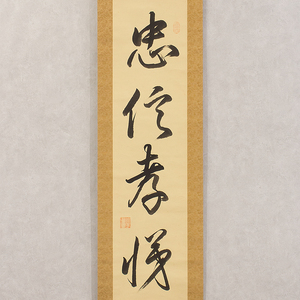 忠信孝悌